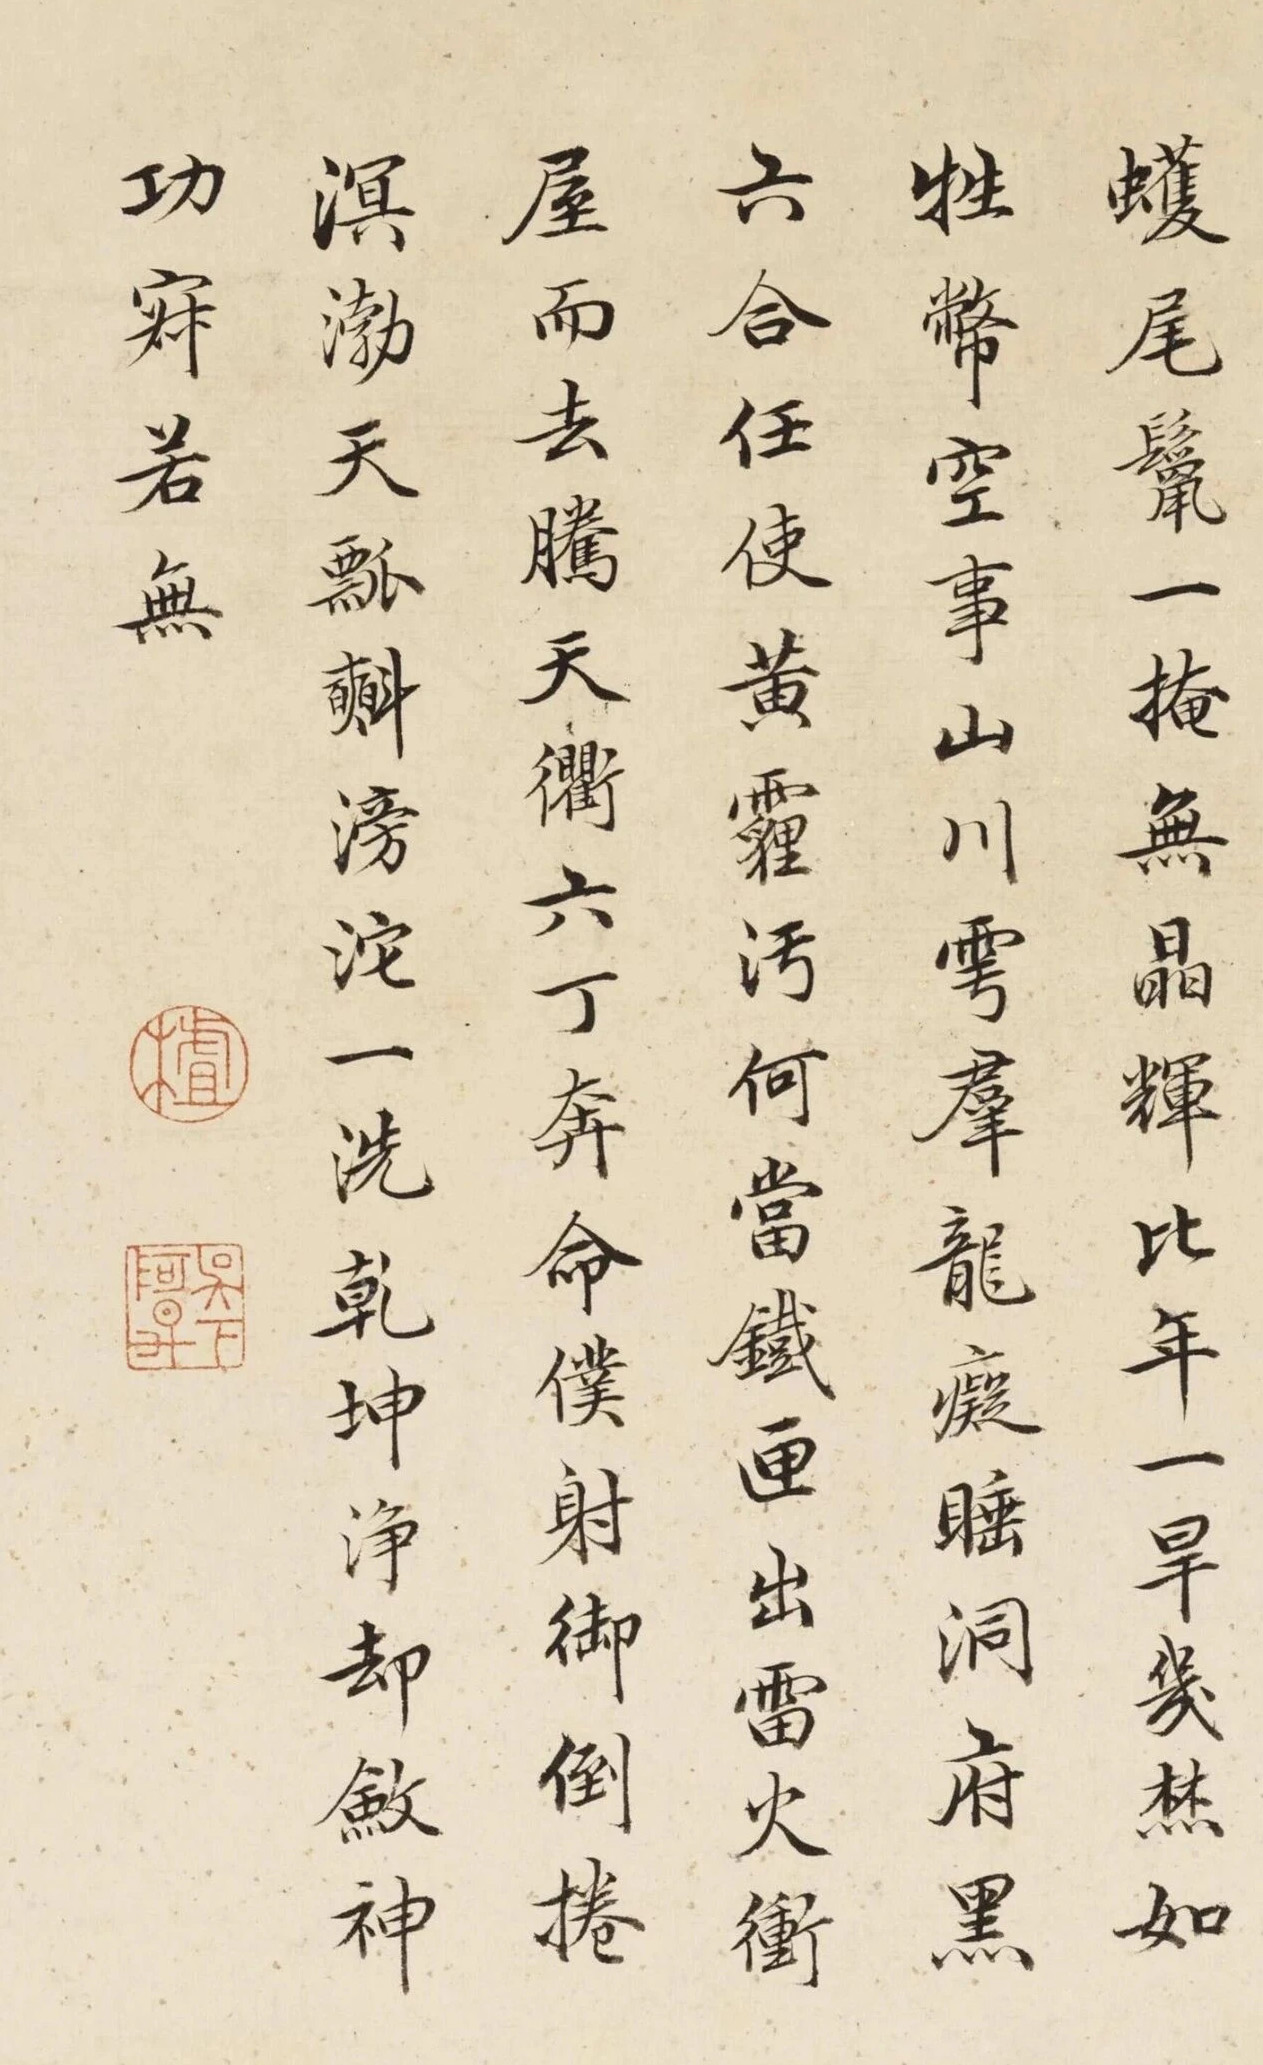 蠖尾鬣一掩無晶輝比年一旱幾焚如
牲幣空事山川雩羣龍癡睡洞府黑
六合任使黃霾汚何當鐵匣出雷火衝
屋而去騰天衢六丁奔命僕射御倒捲
溟渤天瓢㪺滂沱一洗乾坤浄却斂神
功寂若無